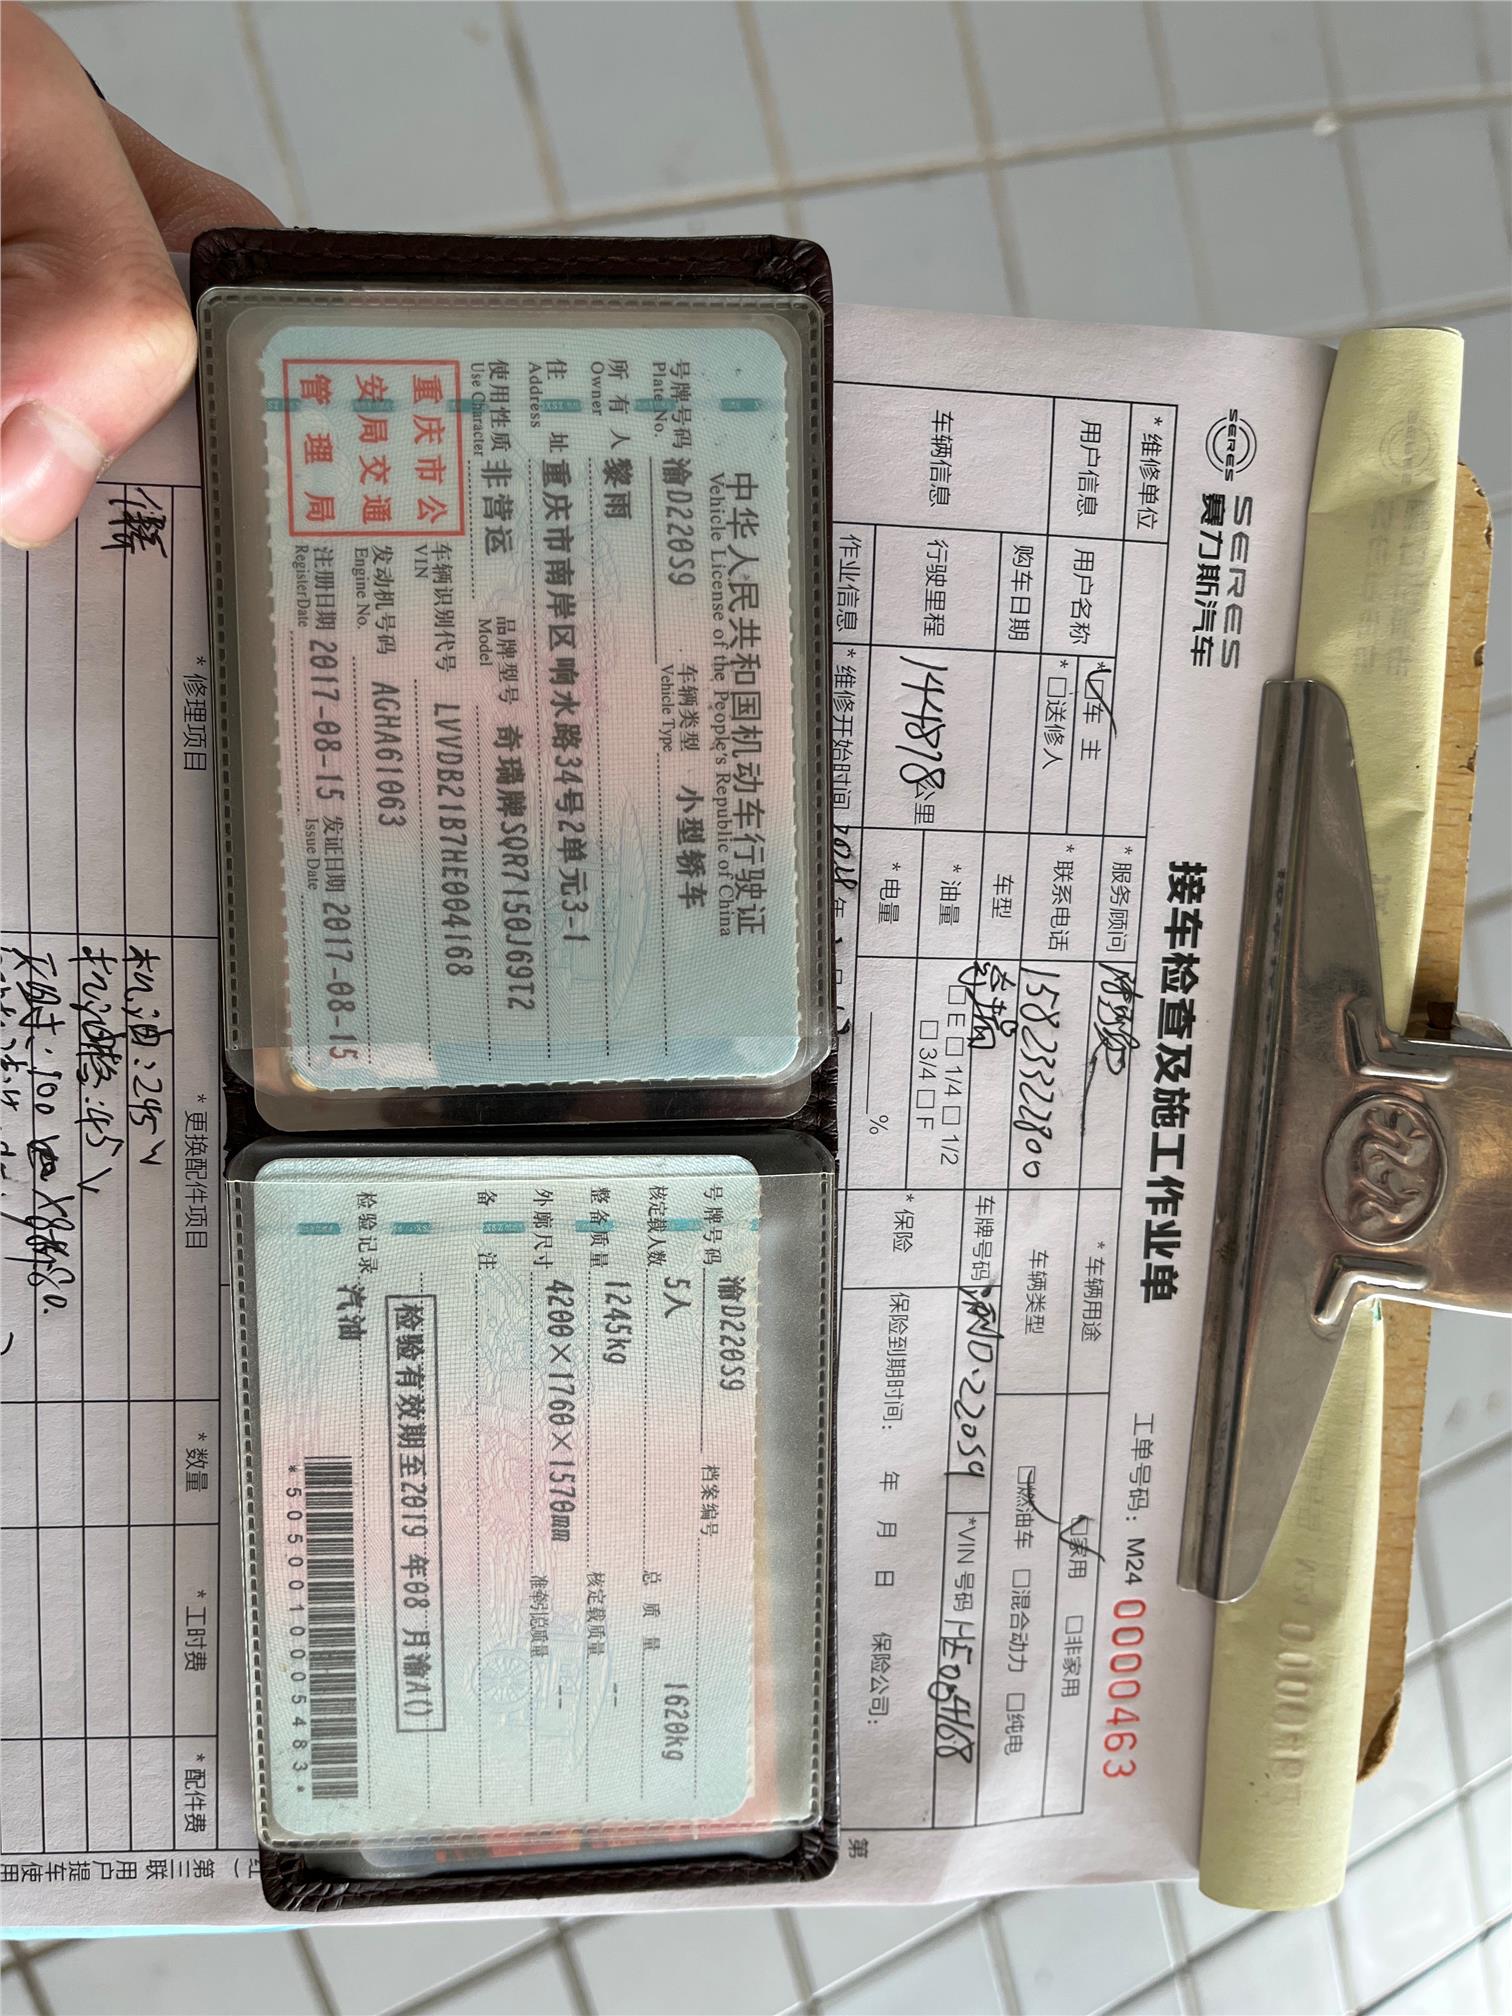 SERES
SERES
赛力斯汽车
接车检查及施工作业单
工单号码：M24 0000463
*维修单位
*服务顾问
*车辆用途
☑家用 □非家用
用户信息
用户名称
*☑车 主
*□送修人
*联系电话
15823322800
车辆类型
☑燃油车 □混合动力 □纯电
车辆信息
购车日期
车型
奇瑞
车牌号码
渝D·220S9
*VIN号码
HE004168
行驶里程
144878公里
*油量
□E □1/4 □1/2
□3/4 □F
*电量
%
*保险
保险到期时间： 年 月 日 保险公司：
作业信息
*维修开始时间
年
第
中华人民共和国机动车行驶证
Vehicle License of the People's Republic of China
号牌号码 渝D220S9 车辆类型 小型轿车
Plate No. Vehicle Type
所有人 黎雨
Owner
住址 重庆市南岸区响水路34号2单元3-1
Address
使用性质 非营运 品牌型号 奇瑞牌SQR7150J69T2
Use Character Model
重庆市公
安局交通
管理局
车辆识别代号 LVVDB21B7HE004168
VIN
发动机号码 AGHA61063
Engine No.
注册日期 2017-08-15 发证日期 2017-08-15
Register Date Issue Date
号牌号码 渝D220S9 档案编号
核定载人数 5人 总质量 1620kg
整备质量 1245kg 核定载质量 --
外廓尺寸 4200×1760×1570mm 准牵引总质量 --
备注
检验有效期至2019年08月渝A()
检验记录 汽油
*5050010005483*
*修理项目
*更换配件项目
*数量
*工时费
*配件费
保养
机油:245
机油格:45
第三联 用户提车使用